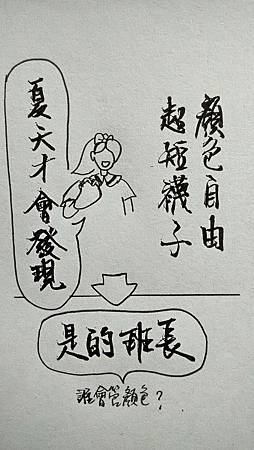 顏色自由
超短襪子
夏天才會發現
是的班長
誰會管顏色?